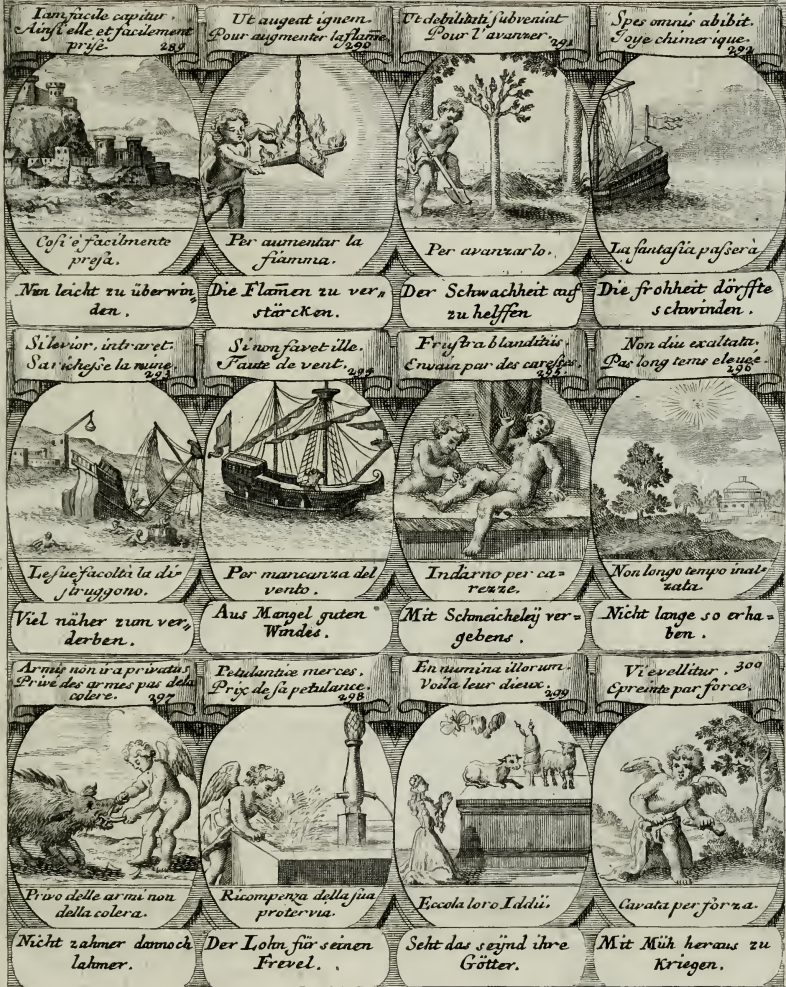 Iam facile capitur.
Ainsi elle et facilement
prise. 289
Cosi è facilmente
presa.
Nun leicht zu überwin„
den.
Ut augeat ignem.
Pour augmenter la flame.
290
Per aumentar la
fiamma.
Die Flamen zu ver„
stärcken.
Ut debilitati subveniat
Pour l'avanzer. 291
Per avanzarlo.
Der Schwachheit auf
zu helffen
Spes omnis abibit.
Joye chimerique.
292
La fantasia passerà
Die frohheit dörffte
schwinden.
Si levior, intraret.
Sa richesse la ruine.
293
Le sue facoltà la di=
struggono.
Viel näher zum ver„
derben.
Si non favet ille.
Faute de vent. 294
Per mancanza del
vento.
Aus Mangel guten
Windes.
Frustra blanditiis.
Envain par des caresses.
295
Indarno per ca=
rezze.
Mit Schmeicheleÿ ver=
gebens.
Non diu exaltata.
Pas long tems elevee.
296
Non longo tempo inal=
zata.
Nicht lange so erha=
ben.
Armis non ira privatus
Privé des armes pas dela
colere. 297
Privo delle armi non
della colera.
Nicht zahmer dannoch
lahmer.
Petulantiæ merces.
Prix de sa petulance.
298
Ricompenza della sua
protervia.
Der Lohn für seinen
Frevel.
En numina illorum.
Voila leur dieux.
299
Eccola loro Iddii.
Seht das seÿnd ihre
Götter.
Vi evellitur. 300
Epreinte par force.
Cavata per forza.
Mit Müh heraus zu
Kriegen.